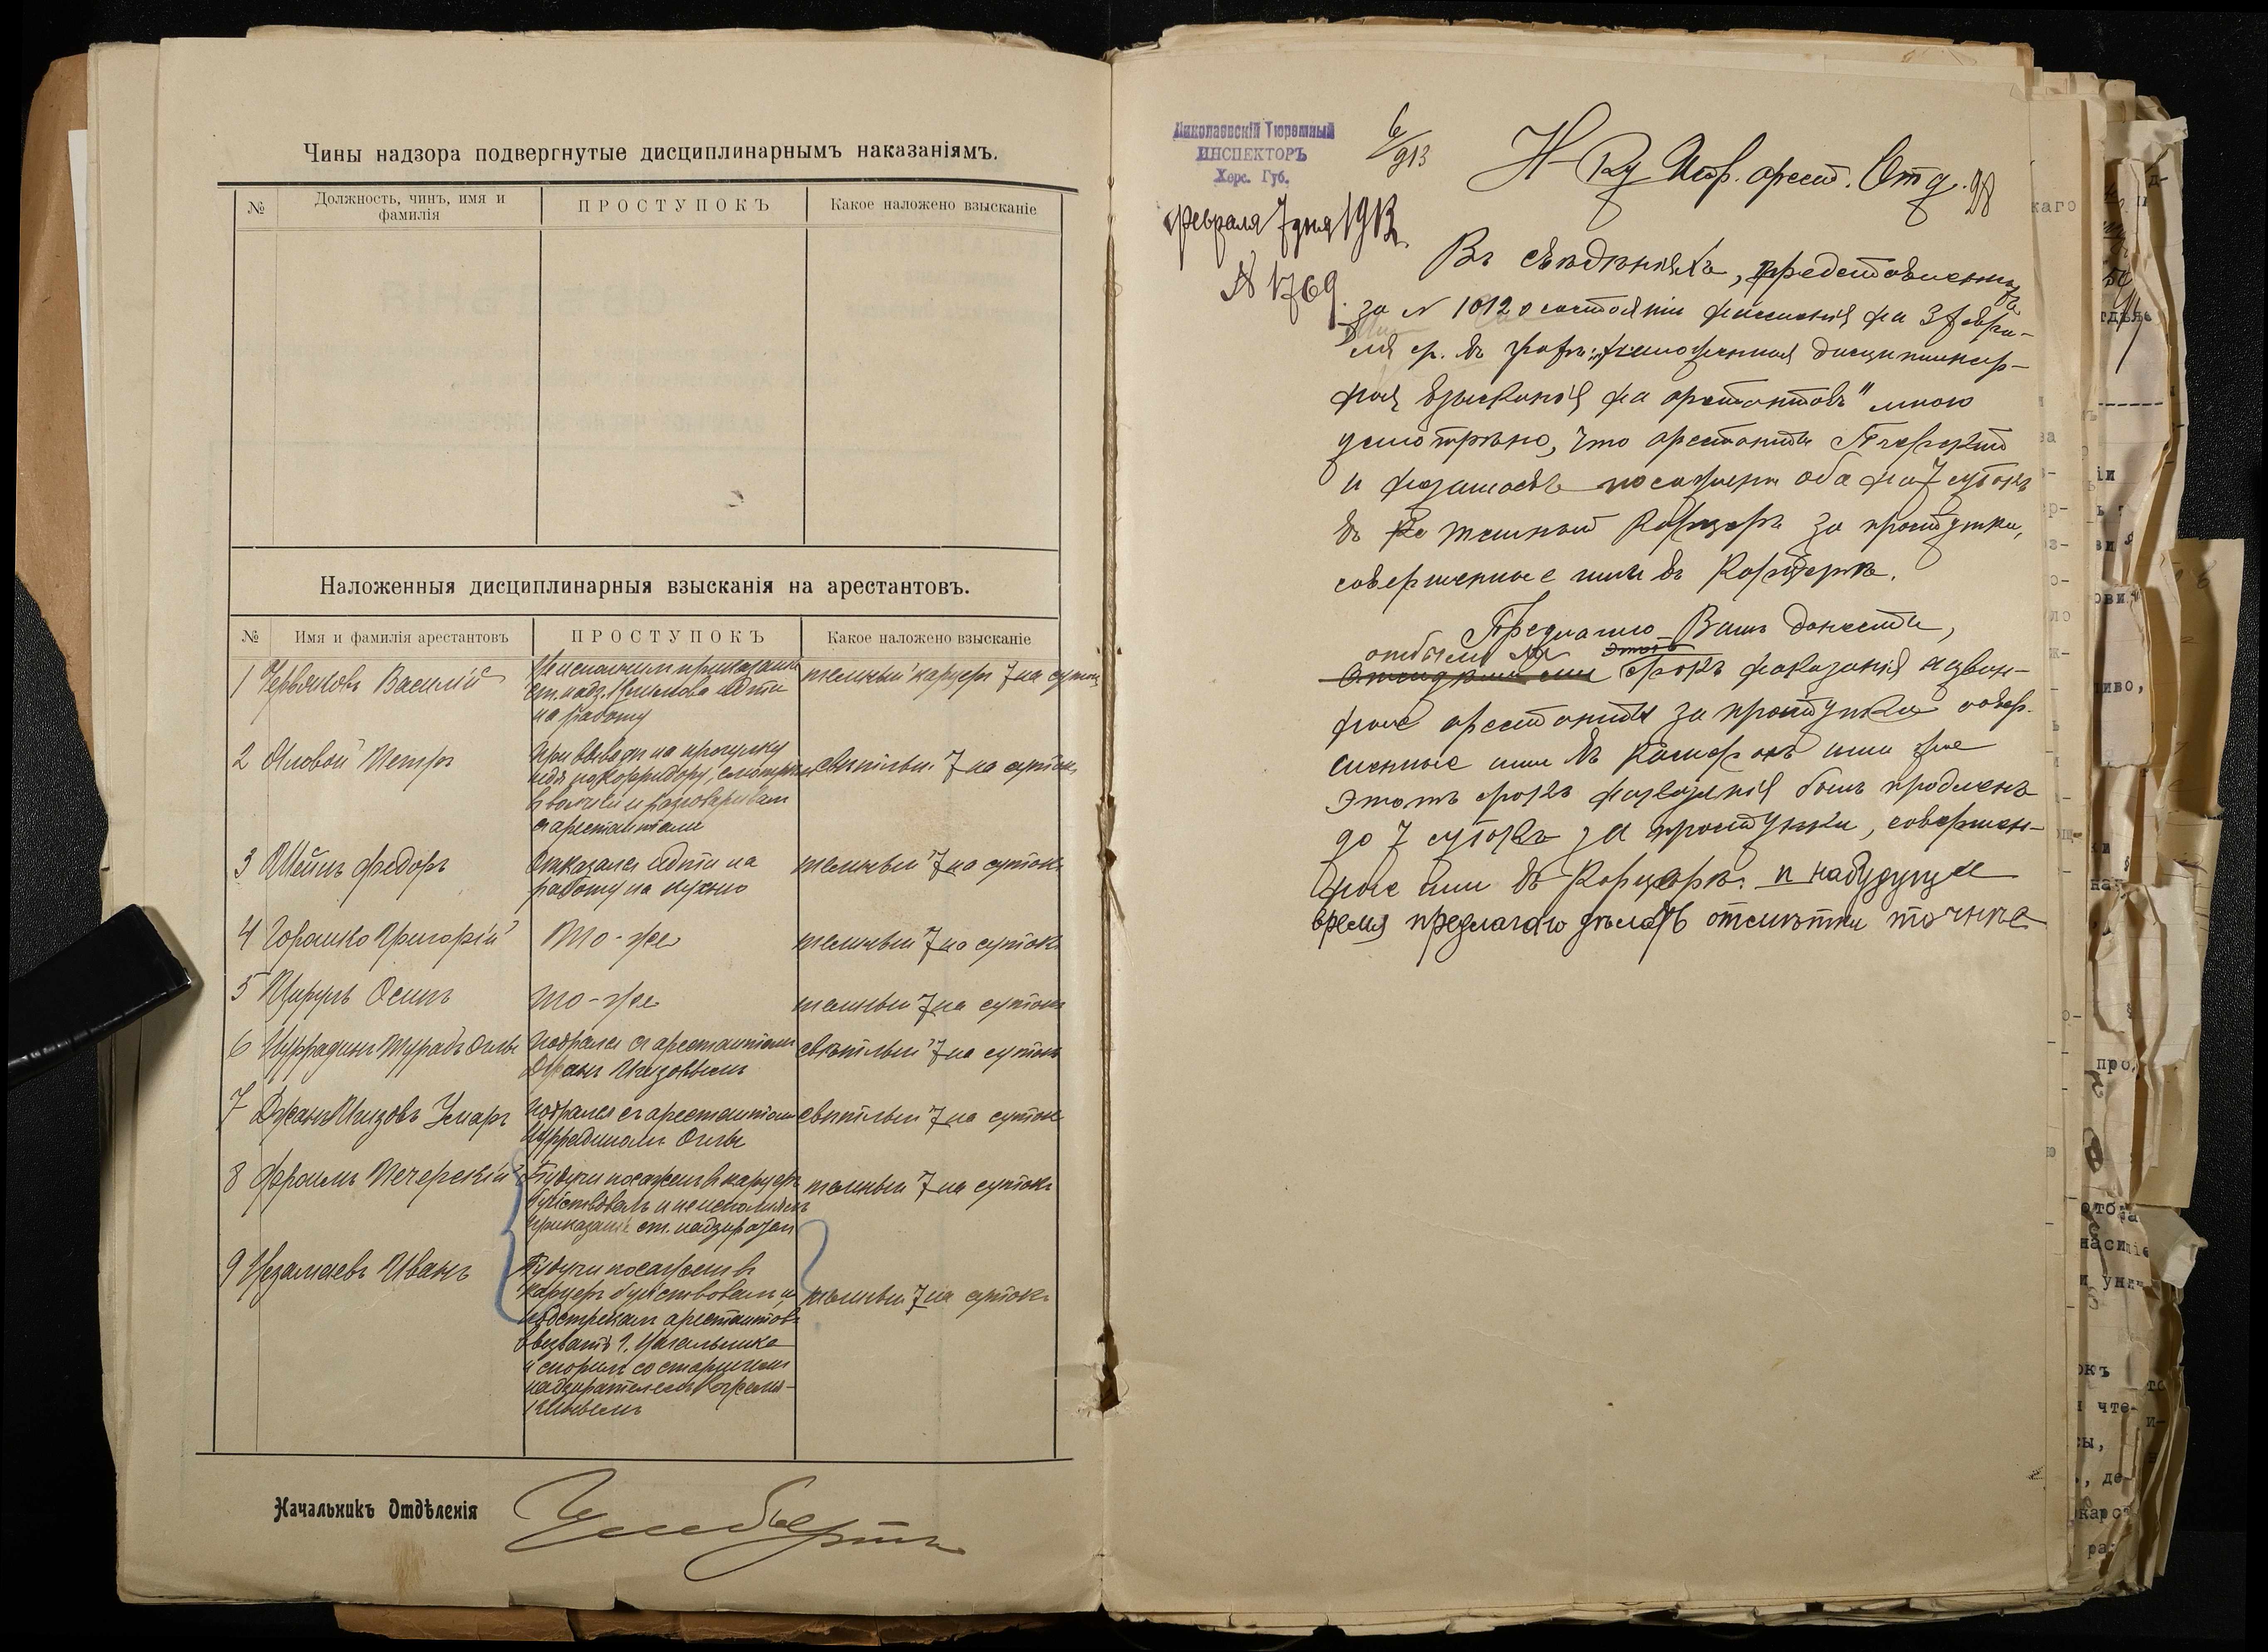 Чины надзора подвергнутые дисциплинарнымъ наказаніямъ.
№
Должность, чинъ, имя и фамилія
ПРОСТУПОКЪ
Какое наложено взысканіе
Наложенныя дисциплинарныя взысканія на арестантовъ.
№
Имя и фамилія арестантовъ
ПРОСТУПОКЪ
Какое наложено взысканіе
1 Червяковъ Василій
ст. надз. идти
на работу
темный карцеръ 7 на сутокъ
2 Яловой Петръ
При выводѣ на прогулку
идя по корридору, смотрѣлъ
въ волчки и разговаривалъ
съ арестантами
свѣтлый 7 на сутокъ
3 Шейнъ Федоръ
Отказался идти на
работу на кухню
темный 7 на сутокъ
4 Горошко Григорій
То-же
темный 7 на сутокъ
5 Цируль Осипъ
то-же
темный 7 на сутокъ
6 Нуррадинъ Мурадъ Оглы
Подрался съ арестантомъ
Джанъ
свѣтлый 7 на сутокъ
7 Умаръ
Подрался съ арестантомъ
Нуррадиномъ Оглы
свѣтлый 7 на сутокъ
8 Фроимъ Печерскій
Будучи посаженъ въ карцеръ
буйствовалъ и не исполнялъ
приказаніе ст. надзирателя
темный 7 на сутокъ
9 Незамаевъ Иванъ
Будучи посаженъ въ
карцеръ буйствовалъ и
подстрекалъ арестантовъ
вызвать г. Начальника
и спорилъ со старшимъ
надзирателемъ
темный 7 на сутокъ
Начальникъ Отдѣленія
Николаевскій Тюремный
ИНСПЕКТОРЪ
Херс. Губ.
6/913
февраля 7 дня 1913
N 1769.
Н-ку Испр. арест. Отд. 98
Въ свѣдѣніяхъ, представленныхъ
за N 1012 о состояніи на 3 февра-
ля с.г. въ графѣ: „Наложенныя дисциплинар-
ныя взысканія на арестантовъ" мною
усмотрѣно, что арестанты Печерскій
и Незамаевъ посажены оба на 7 сутокъ
въ темный карцеръ за проступки,
совершенные ими въ карцерѣ.
Предлагаю Вамъ донести,
отбыли ли
срокъ наказанія назван-
ные арестанты за проступки совер-
шенные ими въ или же
этотъ срокъ наказанія былъ продленъ
до 7 сутокъ за проступки, совершен-
ные ими въ карцерѣ. и на будущее
время предлагаю дѣлать отмѣтки точнѣе